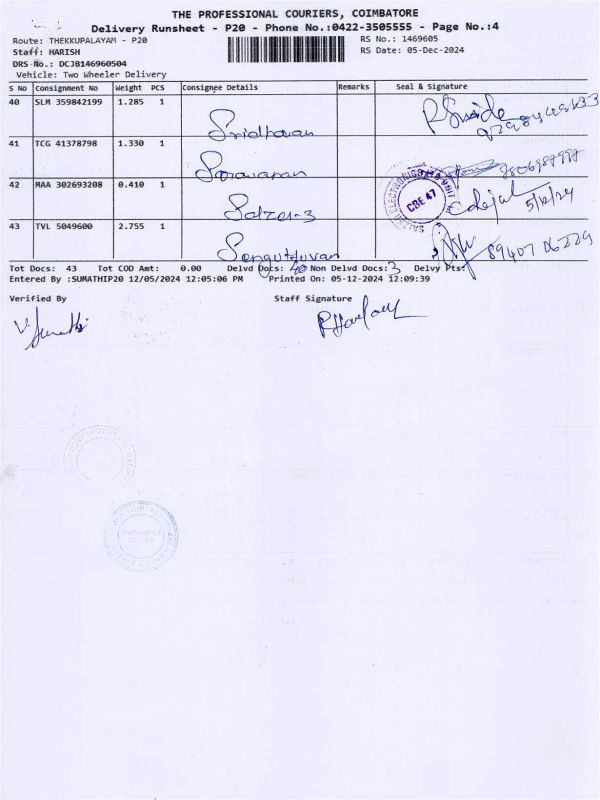 THE PROFESSIONAL COURIERS, COIMBATORE
Delivery Runsheet - P20 - Phone No.:0422-3505555 - Page No.:4
Route: THEKKUPALAYAM - P20 RS No.: 1469605
Staff: HARISH RS Date: 05-Dec-2024
DRS No.: DCJB146960504
Vehicle: Two Wheeler Delivery
S No Consignment No Weight PCS Consignee Details Remarks Seal & Signature
40 SLM 359842199 1.285 1
Sridharan
41 TCG 41378798 1.330 1
Saravanan 9806987997
42 MAA 302693208 0.410 1
CBE 47
5/12/24
43 TVL 5049600 2.755 1
Senguttuvan
Tot Docs: 43 Tot COD Amt: 0.00 Delvd Docs: 40 Non Delvd Docs: 3 Delvy Pts:
Entered By :SUMATHIP20 12/05/2024 12:05:06 PM Printed On: 05-12-2024 12:09:39
Verified By Staff Signature